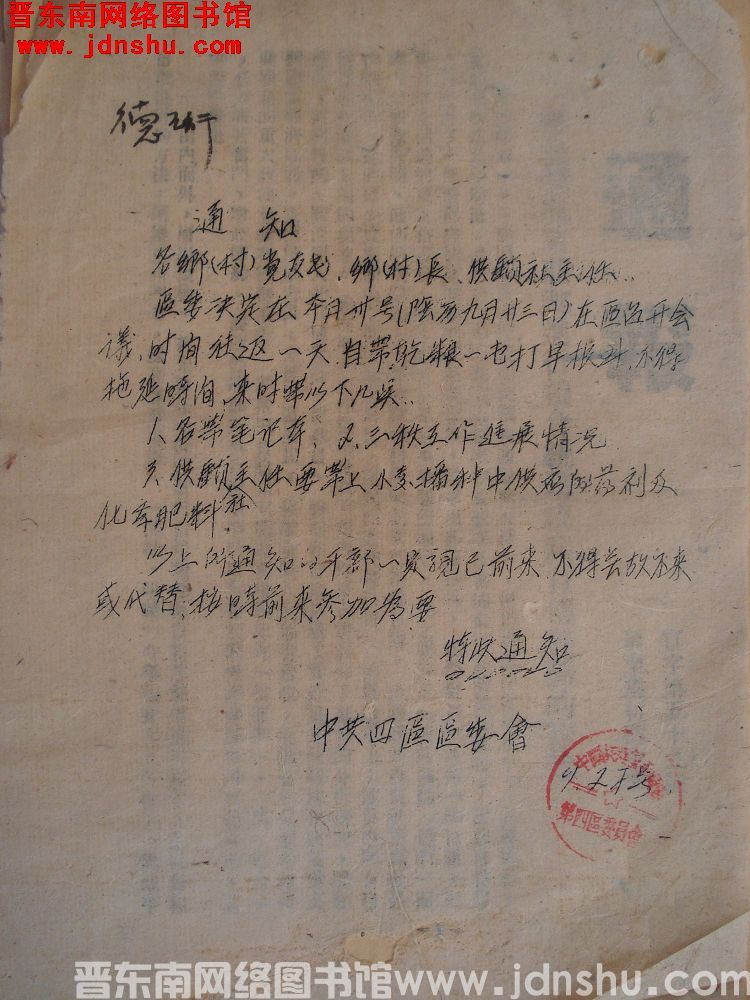 晋东南网络图书馆
www.jdnshu.com
通知
各鄉(村)党支书、鄉(村)長、供銷社主任:
區委决定在本月卅号(陰历九月廿三日)在區召开会
議,时间往返一天,自带乾粮一
拖延時间,来时带以下几项:
1、各带笔记本,2、三秋工作进展情况
3、供銷主任要带上小麦播种中供应的药剂及
化学肥料
社
以上所通知的干部一
前来,不得去故不来
或代替,按時前来参加为要
特此通知
中共四區區委會
第四區委員會
晋东南网络图书馆www.jdnshu.com